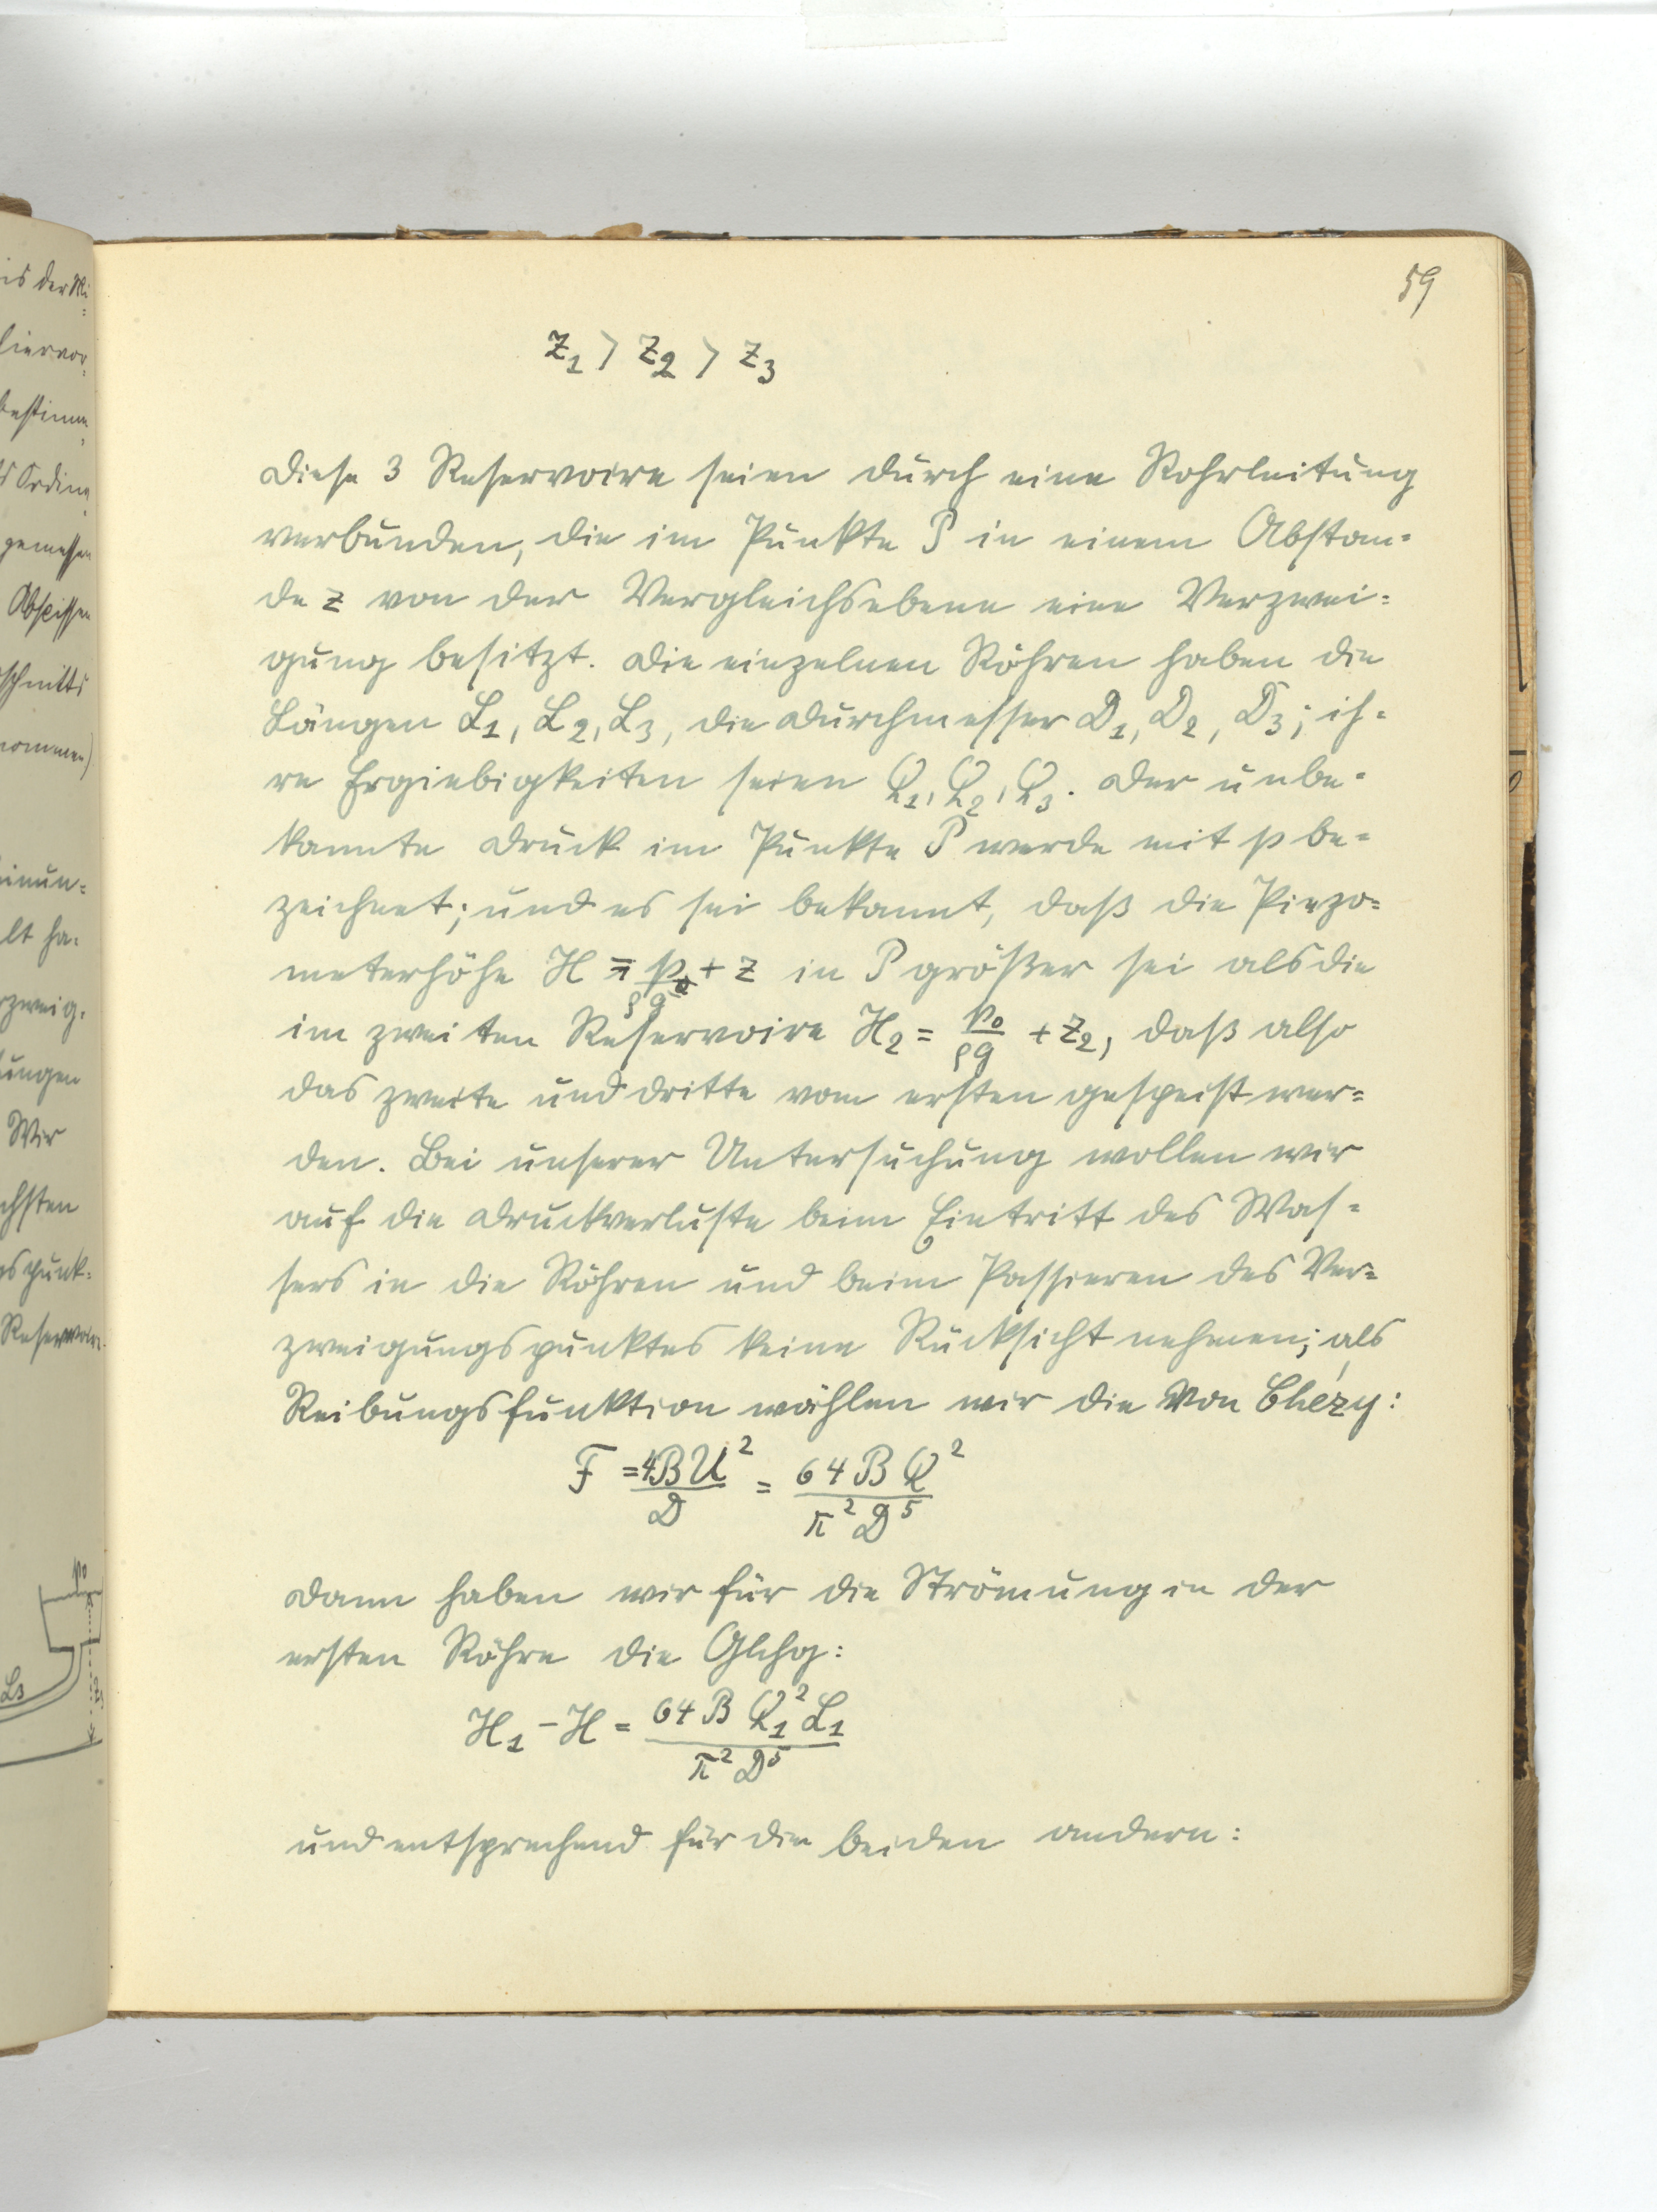 59
z₁ > z₂ > z₃
Diese 3 Reservoire seien durch eine Rohrleitung
verbunden, die im Punkte P in einem Abstan=
de z von der Vergleichsebene eine Verzwei=
gung besitzt. Die einzelnen Röhren haben die
Längen L₁, L₂, L₃, die Durchmesser D₁, D₂, D₃; ih=
re Ergiebigkeiten seien Q₁, Q₂, Q₃. Der unbe=
kannte Druck im Punkte P werde mit p be=
zeichnet; und es sei bekannt, daß die Piezo=
meterhöhe H = p/ρg + z in P größer sei als die
im zweiten Reservoire H₂ = p₀/ρg + z₂, daß also
das zweite und dritte vom ersten gespeist wer=
den. Bei unserer Untersuchung wollen wir
auf die Druckverluste beim Eintritt des Was=
sers in die Röhren und beim Passieren des Ver=
zweigungspunktes keine Rücksicht nehmen; als
Reibungsfunktion wählen wir die von Chézy:
F = 4BU²/D = 64BQ²/π²D⁵
Dann haben wir für die Strömung in der
ersten Röhre die Glchg:
H₁ - H = 64BQ₁²L₁/π²D⁵
und entsprechend für die beiden andern: